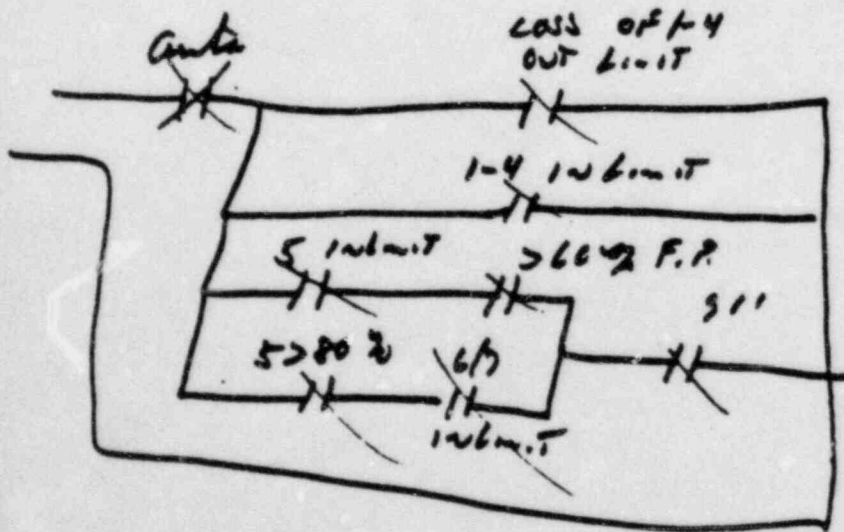 Auto
Loss of 1-4
out Limit
1-4 in Limit
5 in Limit
>60% F.P.
5>80%
6/7
in Limit